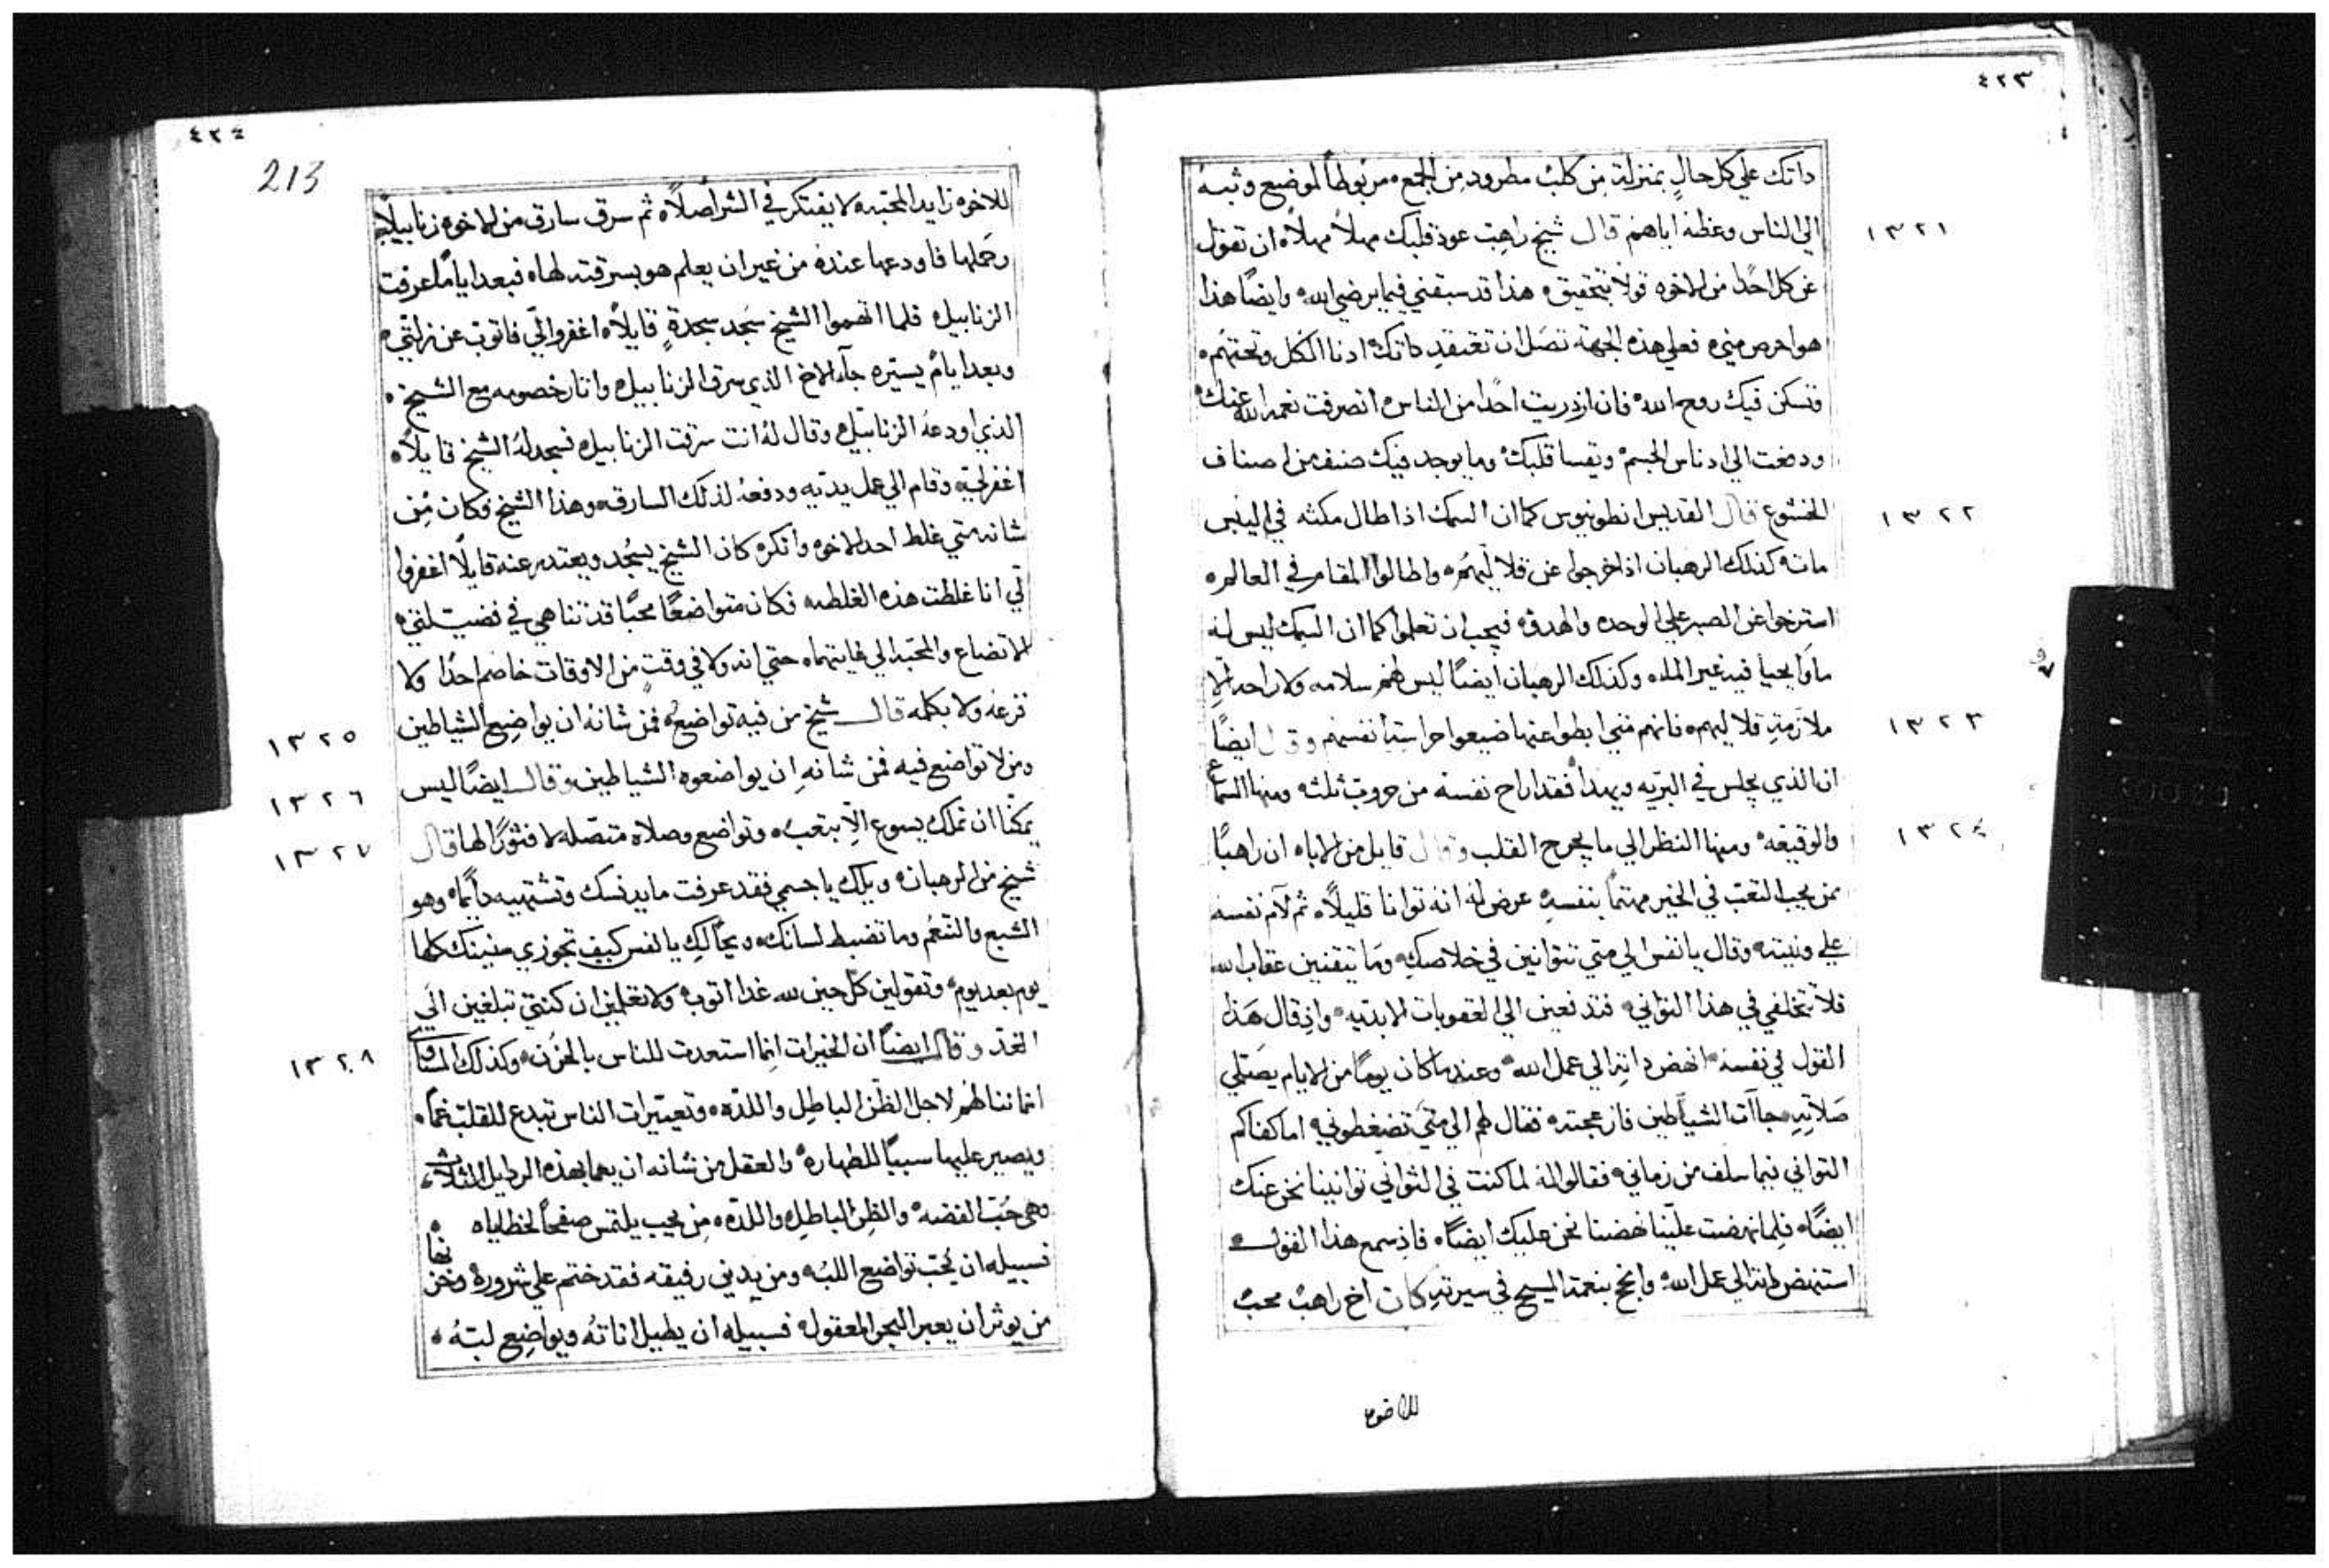 ٤٢٣
داتك علي كل حالٍ بمنزلة من كلبٌ مطرود من الجمع، مربوطاً لموضع وثبهُ
الي الناس وعظهُ اياهم قال شيخ راهب عود قلبك مهلاً مهلاً ان تقول
١٣٢١
عن كل احدًا من الاخوه قولاً بتحقيق، هذا قد سبقني فيما يرضي الله، وايضًا هذا
هو احرص مني، فعلي هذه الجهة تصل ان تعتقد داتك ادنا الكل وتحتهم،
فتسكن فيك روح الله، فان ازدريت احدًا من الناس، انصرفت نعمة الله عنك
ودفعت الي ادناس الجسم، ويقسا قلبك، وما يوجد فيك صنف من اصناف
الخشوع قال القديس انطونيوس كما ان السمك اذا طال مكثه في اليبس
١٣٢٢
مات، كذلك الرهبان اذا خرجوا عن قلاليهم، واطالوا المقام في العالم،
استرخوا عن الصبر علي الوحده والهدو، فيجب ان تعلموا كما ان السمك ليس له
ماوا يحيا فيه غير الماء، وكذلك الرهبان ايضًا ليس لهم سلامه ولا راحه الا
ملازمة قلاليهم، فانهم متي ابطوا عنها ضيعوا حراسة انفسهم وقال ايضًا
١٣٢٣
ان الذي يجلس في البريه ويهدا، فقد اراح نفسه من حروب ثلثه ومنها السماع
والوقيعه، ومنها النظر الي ما يجرح القلب وقال قايل من الاباء ان راهبًا
١٣٢٤
ممن يحب التعب في الخير مهتمًا بنفسه، عرض له انه توانا قليلاً، ثم لام نفسه
علي ونيته، وقال يا نفس الي متي تتوانين في خلاصك، وما تتقين عقاب الله
فلا تتخلفي في هذا التواني، فتدفعين الي العقوبات الابديه، واذ قال هذا
القول في نفسه، انهض داته الي عمل الله، وعندما كان يومًا من الايام يصلي
صلاته، جاات الشياطين فازعجته، فقال لهم الي متي تضغطوني، اما كفاكم
التواني فيما سلف من زماني، فقالوا له لما كنت في التواني توانينا نحن عنك
ايضًا، فلما نهضت علينا نهضنا نحن عليك ايضًا، فاذ سمع هذا القول
استنهض داته الي عمل الله، وانجح بنعمة المسيح في سيرته كان اخ راهبٌ محبٌ
للاخوه
٤٢٤
213
للاخوه زايد المحبه، لا يفتكر في الشر اصلاً، ثم سرق سارق من الاخوه زنابيلاً
وحملها فاودعها عنده من غير ان يعلم هو بسرقته لها، فبعد ايامًا عرفت
الزنابيل، فلما اتهموا الشيخ سجد سجدةٍ قايلاً، اغفروا لي فاتوب عن زلتي،
وبعد ايامٌ يسيره جآ الاخ الذي سرق الزنابيل، واثار خصومه مع الشيخ،
الذي اودعهُ الزنابيل، وقال لهُ انت سرقت الزنابيل، فسجد لهُ الشيخ قايلاً،
اغفر لي، وقام الي عمل يديه ودفعهُ لذلك السارق، وهذا الشيخ فكان من
شانه متي غلط احد الاخوه وانكره كان الشيخ يسجُد ويعتدر عنه قايلاً اغفروا
لي انا غلطت هذه الغلطه، فكان متواضعًا محبًا قد تناهي في فضيلتي،
الاتضاع والمحبه الي غايتهما، حتي انه ولا في وقتٍ من الاوقات خاصم احدًا ولا
قرعهُ ولا بكلمه قال شيخ من فيه تواضعٌ، فمن شانهُ ان يواضع الشياطين
١٣٢٥
ومن لا تواضع فيه فمن شانه ان يواضعوه الشياطين، وقال ايضًا ليس
١٣٢٦
يمكنا ان نملك يسوع الا بتعبٌ، وتواضع وصلاه متصله لا فتورًا لها قال
١٣٢٧
شيخ من الرهبان، ويلك يا جسمي فقد عرفت ما يدنسك وتشتهيه دايمًا، وهو
الشبع والتنعُم وما تضبط لسانك، ويحًا لكِ يا نفس كيف تجوزي سنينك كلها
يوم بعد يوم، وتقولين كل حين لله غدا اتوب، ولا تعلمين ان كنتي تبلغين الي
الغد وقال ايضًا ان الخيرات انما استعدت للناس بالحزن، وكذلك المساوي
١٣٢٨
انما تنالهُم لاجل الظن الباطل واللذه، وتعييرات الناس تبدع للقلب غمًا،
ويصير عليها سببًا للطهاره، والعقل من شانه ان يعما بهذه الرديل الثلاث،
وهي حُب الفضه، والظن الباطل، واللذه، من يحب يلتمس صفحًا لخطاياه،
فسبيله ان يُحب تواضع اللبُ، ومن يدين رفيقه فقد ختم علي شروره، ونحن
من يوثر ان يعبر البحر المعقول، فسبيله ان يطيل اناتهُ ويواضع لبهُ،